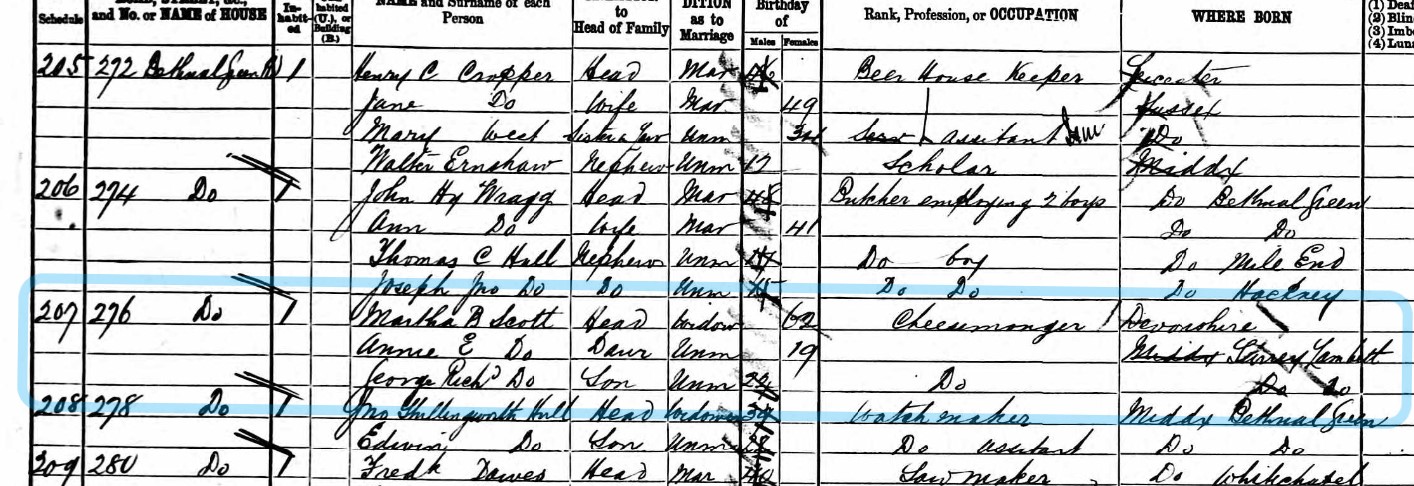 Schedule and No. or NAME of HOUSE In-habit-ed habited (U.), or Building (B.) NAME and Surname of each Person to Head of Family DITION as to Marriage Birthday of Males Females Rank, Profession, or OCCUPATION WHERE BORN (1) Deaf (2) Blin (3) Imbe (4) Luna
205 272 Bethnal Green Rd 1 Henry C Cropper Head Mar Beer House Keeper Leicester
Jane Do Wife Mar 49 Sussex
Mary West Sister in Law Unm Assitant Do
Walter Ernshaw Nephew Unm 17 Scholar Middx
206 274 Do 1 John Hy Wragg Head Mar 48 Butcher employing 2 boys Do Bethnal Green
Ann Do Wife Mar 41 Do Do
Thomas C Hull Nephew Unm Do boy Do Mile End
Joseph Jno Do Do Unm 15 Do Do Do Hackney
207 276 Do 1 Martha B Scott Head Widow 62 Cheesemonger Devonshire
Annie E Do Daur Unm 19 Middx Surrey Lambeth
George Richd Do Son Unm 22 Do Do Do
208 278 Do 1 Jno Hull Head Widower Watch maker Middx Bethnal Green
Edwin Do Son Unm Do assitant Do Do
209 280 Do 1 Fredk Dawes Head Mar 40 Saw maker Do Whitechapel